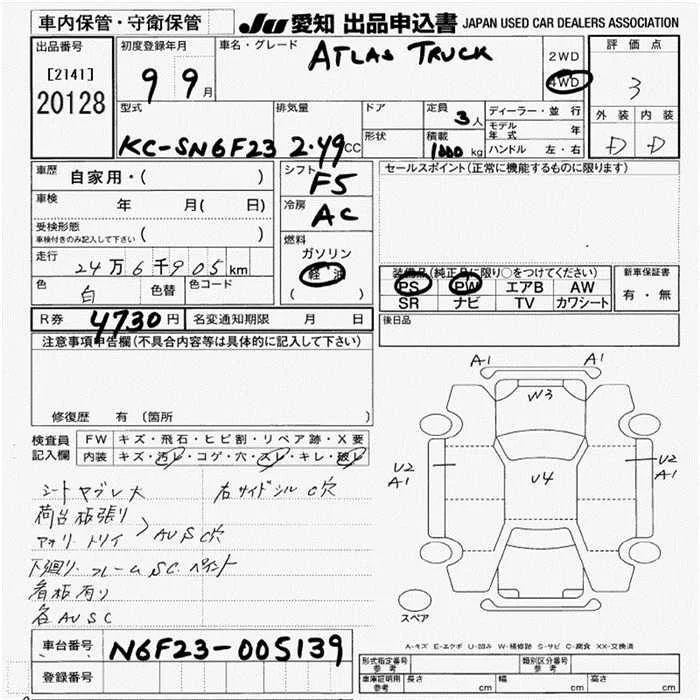 車内保管・守衛保管 JU 愛知 出品申込書 JAPAN USED CAR DEALERS ASSOCIATION
出品番号 初度登録年月 車名・グレード 2WD 評価点
[2141] 9 9月 ATLAS TRUCK 4WD 3
20128
型式 排気量 ドア 定員 3人 ディーラー・並行 外装 内装
KC-SN6F23 2.49CC 形状 積載 1000kg モデル年式 年 D D
ハンドル 左・右
車歴 自家用・( ) シフト F5 セールスポイント(正常に機能するものに限ります)
車検 年 月( 日) 冷房 AC
受検形態 ( )
車検付きのみ記入して下さい
燃料 ガソリン
走行 24万6千905km 軽油 装備品(純正品に限り○をつけてください) 新車保証書
色 白 色替 色コード ( ) PS PW エアB AW 有・無
SR ナビ TV カワシート
R券 4730円 名変通知期限 月 日 後日品
注意事項申告欄(不具合内容等は具体的に記入して下さい)
A1 A1
W3
修復歴 有(箇所
検査員 FW キズ・飛石・ヒビ割・リペア跡・X要
記入欄 内装 キズ・汚レ・コゲ・穴・スレ・キレ・破レ
U2 A1 U4 U2 A1
シートヤブレ大 右サイドシルC穴
荷台板張り
アオリ トリイ > AUSC穴
下廻り フレームSC ペイント
看板有り
各AUSC スペア
A-キズ E-エクボ U-凹み W-補修跡 S-サビ C-腐食 XX-交換済
車台番号 N6F23-005139
登録番号
形式指定番号 参考 類別区分番号 参考
車庫証明用 参考 長さ cm 幅 cm 高さ cm